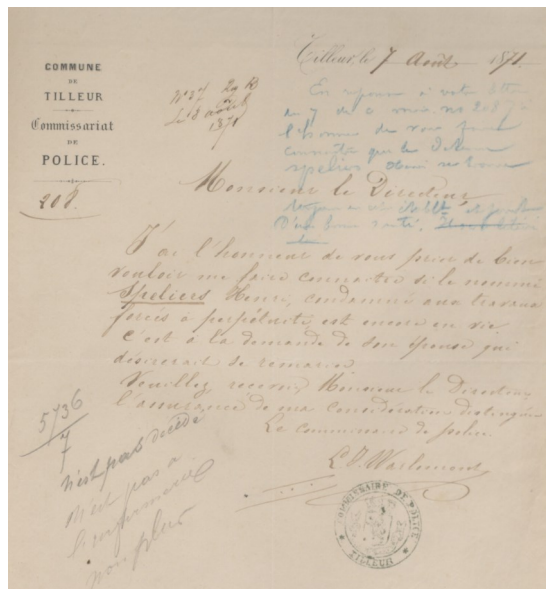 COMMUNE
DE
TILLEUR
Commissariat
DE
POLICE.
208.
Tilleur, le 7 Août 1871.
En réponse à votre lettre
du 7 de ce mois, no 208
l'honneur de vous faire
connaître que le détenu
Speliers
D'une bonne santé.
Monsieur le Directeur,
J'ai l'honneur de vous prier de bien
vouloir me faire connaître si le nommé
Speliers Henri, condamné aux travaux
forcés à perpétuité est encore en vie.
C'est à la demande de son épouse qui
désirerait se remarier.
Veuillez recevoir, Monsieur le Directeur,
l'assurance de ma considération distinguée
Le commissaire de police.
5736
7
n'est pas décédé
n'est pas à
l'infirmerie
non plus
COMMISSAIRE DE POLICE
TILLEUR